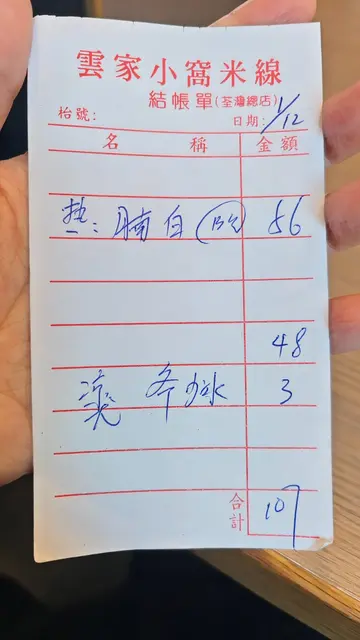 雲家小窩米線
結帳單(荃灣總店)
枱號:
日期: 1/12
名 稱 金額
腩 56
48
少冰 3
合計 107